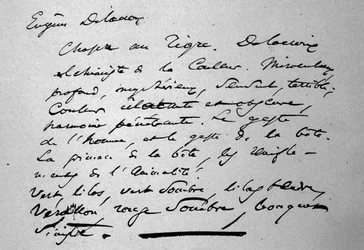 Eugène Delacroix
Chasse au Tigre. Delacroix
alchimiste de la Couleur. Miraculeux,
profond, mystérieux, Sensuel, terrible;
Couleur éclatante et obscure,
harmonie pénétrante. Le geste
de l'homme, et le geste de la bête.
La grimace de la bête, les renifle-
ments de l'animalité.
Vert, lilas, vert Sombre, lilas tendre,
Vermillon, rouge Sombre, bouquet
Sinistre.